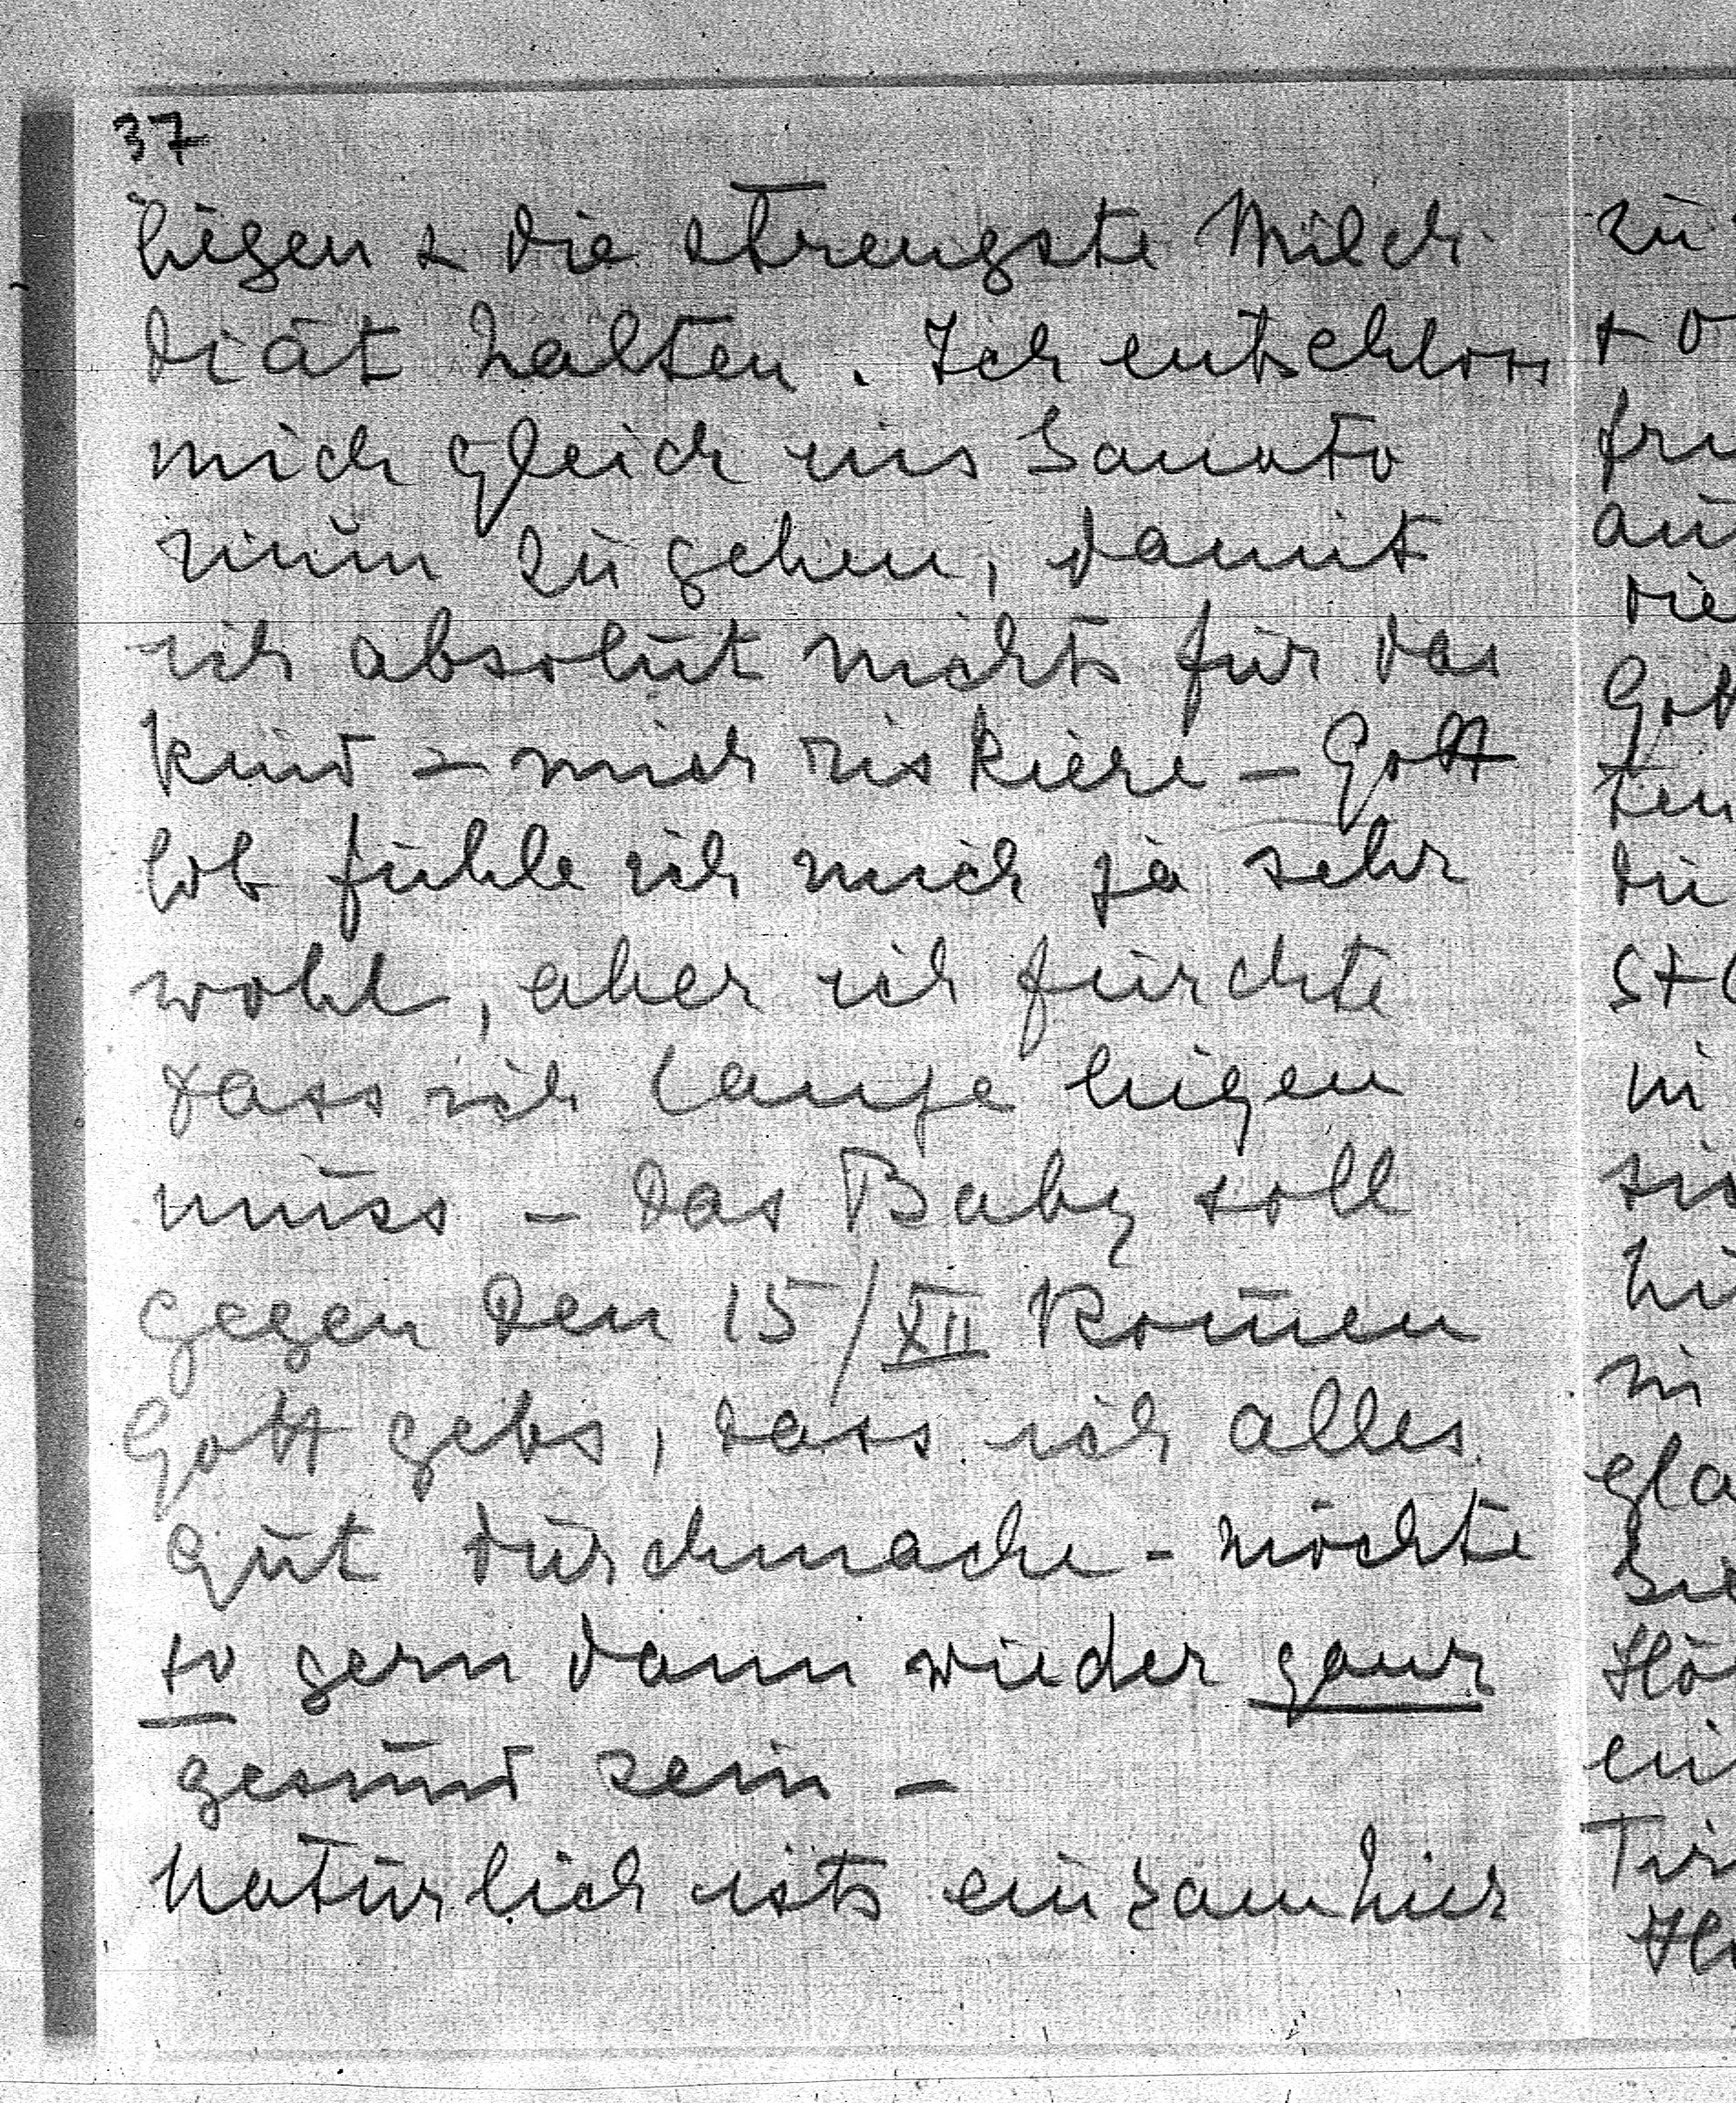 37
liegen & die strengste Milch
diät halten. Ich entschloss
mich gleich ins Sanato
rium zu gehen, damit
ich absolut nichts für das
Kind & mich riskiere – Gott
lob fühle ich mich ja sehr
wohl, aber ich fürchte
dass ich lange liegen
muss – das Baby soll
gegen den 15/XII kom̄en
Gott gebs, dass ich alles
gut durchmache – möchte
so gern dann wieder ganz
gesund sein –
Natürlich ists einsam hier
zu